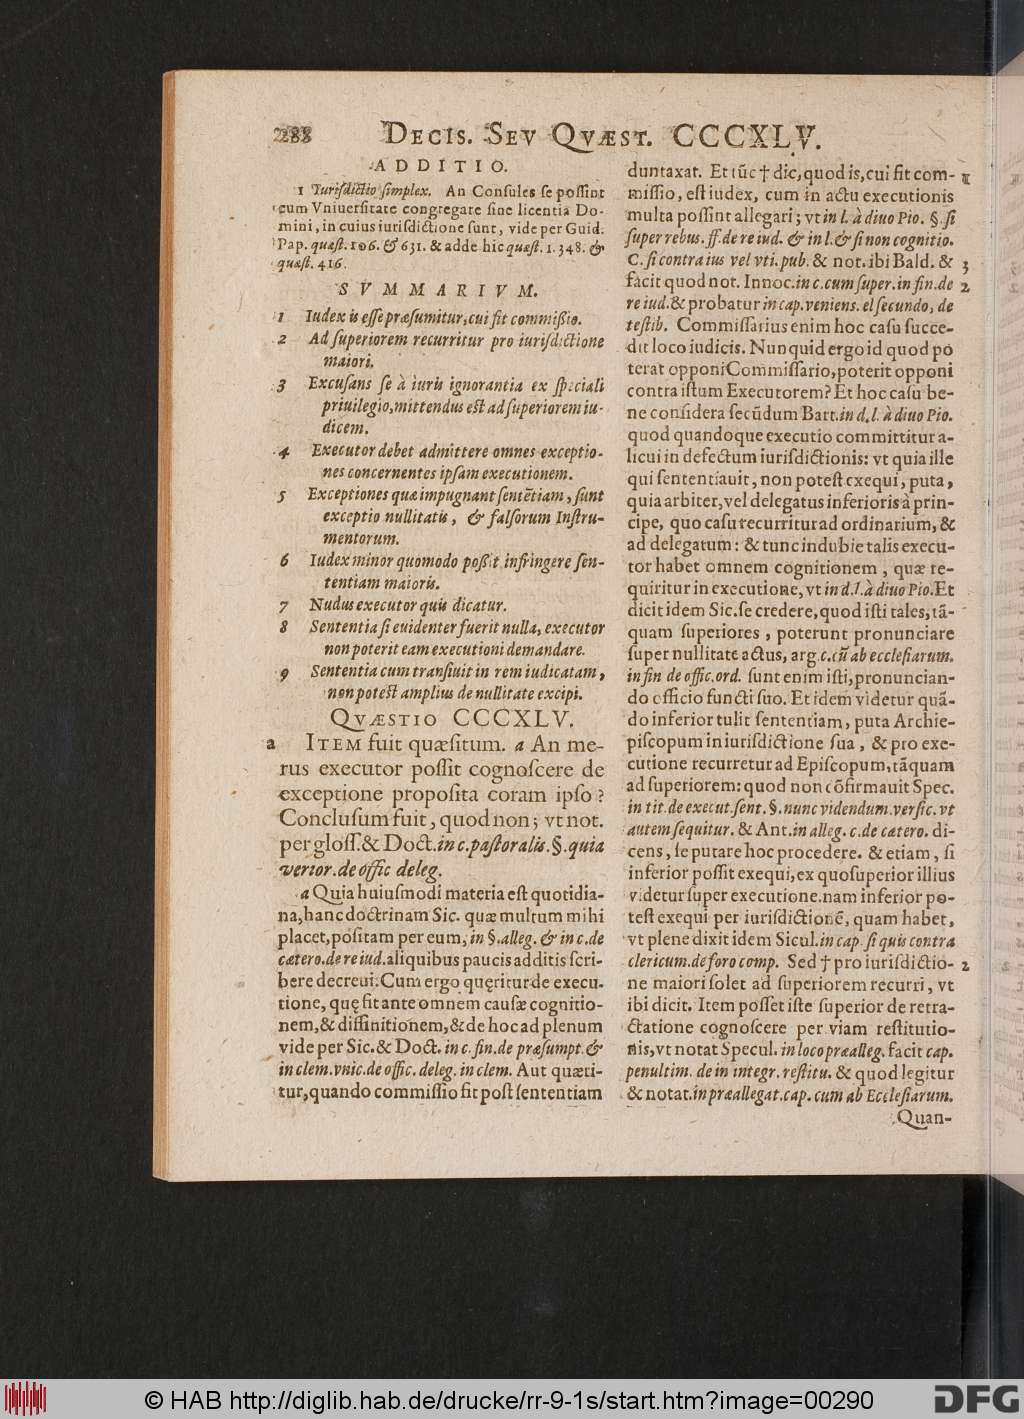 288 DECIS. SEV QVÆST. CCCXLV.
ADDITIO.
1 Iurisdictio simplex. An Consules se possint
cum Vniuersitate congregare sine licentia Do-
mini, in cuius iurisdictione sunt, vide per Guid.
Pap. quæst. 196. & 631. & adde hic quæst. 1. 348. &
quæst. 416.
SVMMARIVM.
1 Iudex is esse præsumitur, cui fit commißio.
2 Ad superiorem recurritur pro iurisdictione
maiori.
3 Excusans se à iuris ignorantia ex speciali
priuilegio, mittendus est ad superiorem iu-
dicem.
4 Executor debet admittere omnes exceptio-
nes concernentes ipsam executionem.
5 Exceptiones quæ impugnant sentētiam, sunt
exceptio nullitatis, & falsorum Instru-
mentorum.
6 Iudex minor quomodo poßit infringere sen-
tentiam maioris.
7 Nudus executor quis dicatur.
8 Sententia si euidenter fuerit nulla, executor
non poterit eam executioni demandare.
9 Sententia cum transiuit in rem iudicatam,
non potest amplius de nullitate excipi.
QVÆSTIO CCCXLV.
a ITEM fuit quæsitum. a An me-
rus executor possit cognoscere de
exceptione proposita coram ipso?
Conclusum fuit, quod non; vt not.
per gloss. & Doct. in c. pastoralis. §. quia
verior. de offic deleg.
a Quia huiusmodi materia est quotidia-
na, hanc doctrinam Sic. quæ multum mihi
placet, positam per eum, in §. alleg. & in c. de
cætero. de re iud. aliquibus paucis additis scri-
bere decreui. Cum ergo quęritur de execu-
tione, quę fit ante omnem causæ cognitio-
nem, & diffinitionem, & de hoc ad plenum
vide per Sic. & Doct. in c. fin. de præsumpt. &
in clem. vnic. de offic. deleg. in clem. Aut quæri-
tur, quando commissio fit post sententiam
duntaxat. Et tūc † dic, quod is, cui fit com- 1
missio, est iudex, cum in actu executionis
multa possint allegari; vt in l. à diuo Pio. §. si
super rebus. ff. de re iud. & in l. & si non cognitio.
C. si contra ius vel vti. pub. & not. ibi Bald. & 3
facit quod not. Innoc. in c. cum super. in fin. de 2
re iud. & probatur in cap. veniens. el secundo, de
testib. Commissarius enim hoc casu succe-
dit loco iudicis. Nunquid ergo id quod po
terat opponi Commissario, poterit opponi
contra istum Executorem? Et hoc casu be-
ne considera secūdum Bart. in d. l. à diuo Pio.
quod quandoque executio committitur a-
licui in defectum iurisdictionis: vt quia ille
qui sententiauit, non potest exequi, puta,
quia arbiter, vel delegatus inferioris à prin-
cipe, quo casu recurritur ad ordinarium, &
ad delegatum: & tunc indubie talis execu-
tor habet omnem cognitionem, quæ re-
quiritur in executione, vt in d. l. à diuo Pio. Et
dicit idem Sic. se credere, quod isti tales, tā-
quam superiores, poterunt pronunciare
super nullitate actus, arg. c. cū ab ecclesiarum.
in fin de offic. ord. sunt enim isti, pronuncian-
do officio functi suo. Et idem videtur quā-
do inferior tulit sententiam, puta Archie-
piscopum in iurisdictione sua, & pro exe-
cutione recurretur ad Episcopum, tāquam
ad superiorem: quod non cōfirmauit Spec.
in tit. de execut. sent. §. nunc videndum. versic. vt
autem sequitur. & Ant. in alleg. c. de cætero. di-
cens, se putare hoc procedere. & etiam, si
inferior possit exequi, ex quo superior illius
videtur super executione. nam inferior po-
test exequi per iurisdictionē, quam habet,
vt plene dixit idem Sicul. in cap. si quis contra
clericum. de foro comp. Sed † pro iurisdictio- 2
ne maiori solet ad superiorem recurri, vt
ibi dicit. Item posset iste superior de retra-
ctatione cognoscere per viam restitutio-
nis, vt notat Specul. in loco præalleg. facit cap.
penultim. de in integr. restitu. & quod legitur
& notat. in præallegat. cap. cum ab Ecclesiarum.
Quan-
© HAB http://diglib.hab.de/drucke/rr-9-1s/start.htm?image=00290
DFG